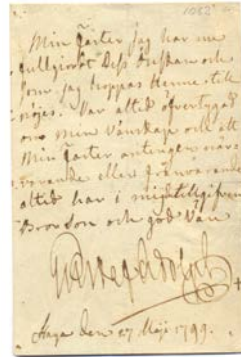 1063
Min Faster jag har nu
fullgiordt Dess önskan och
som jag hoppas Henne till
nöjes. Var altid öfvertygad
om min Vänskap och att
Min Faster antengen när-
varande eller frånvarande
altid har i mig
Brorson och god Vän
Gustaf Adolph
Haga den 27 Maji 1799.